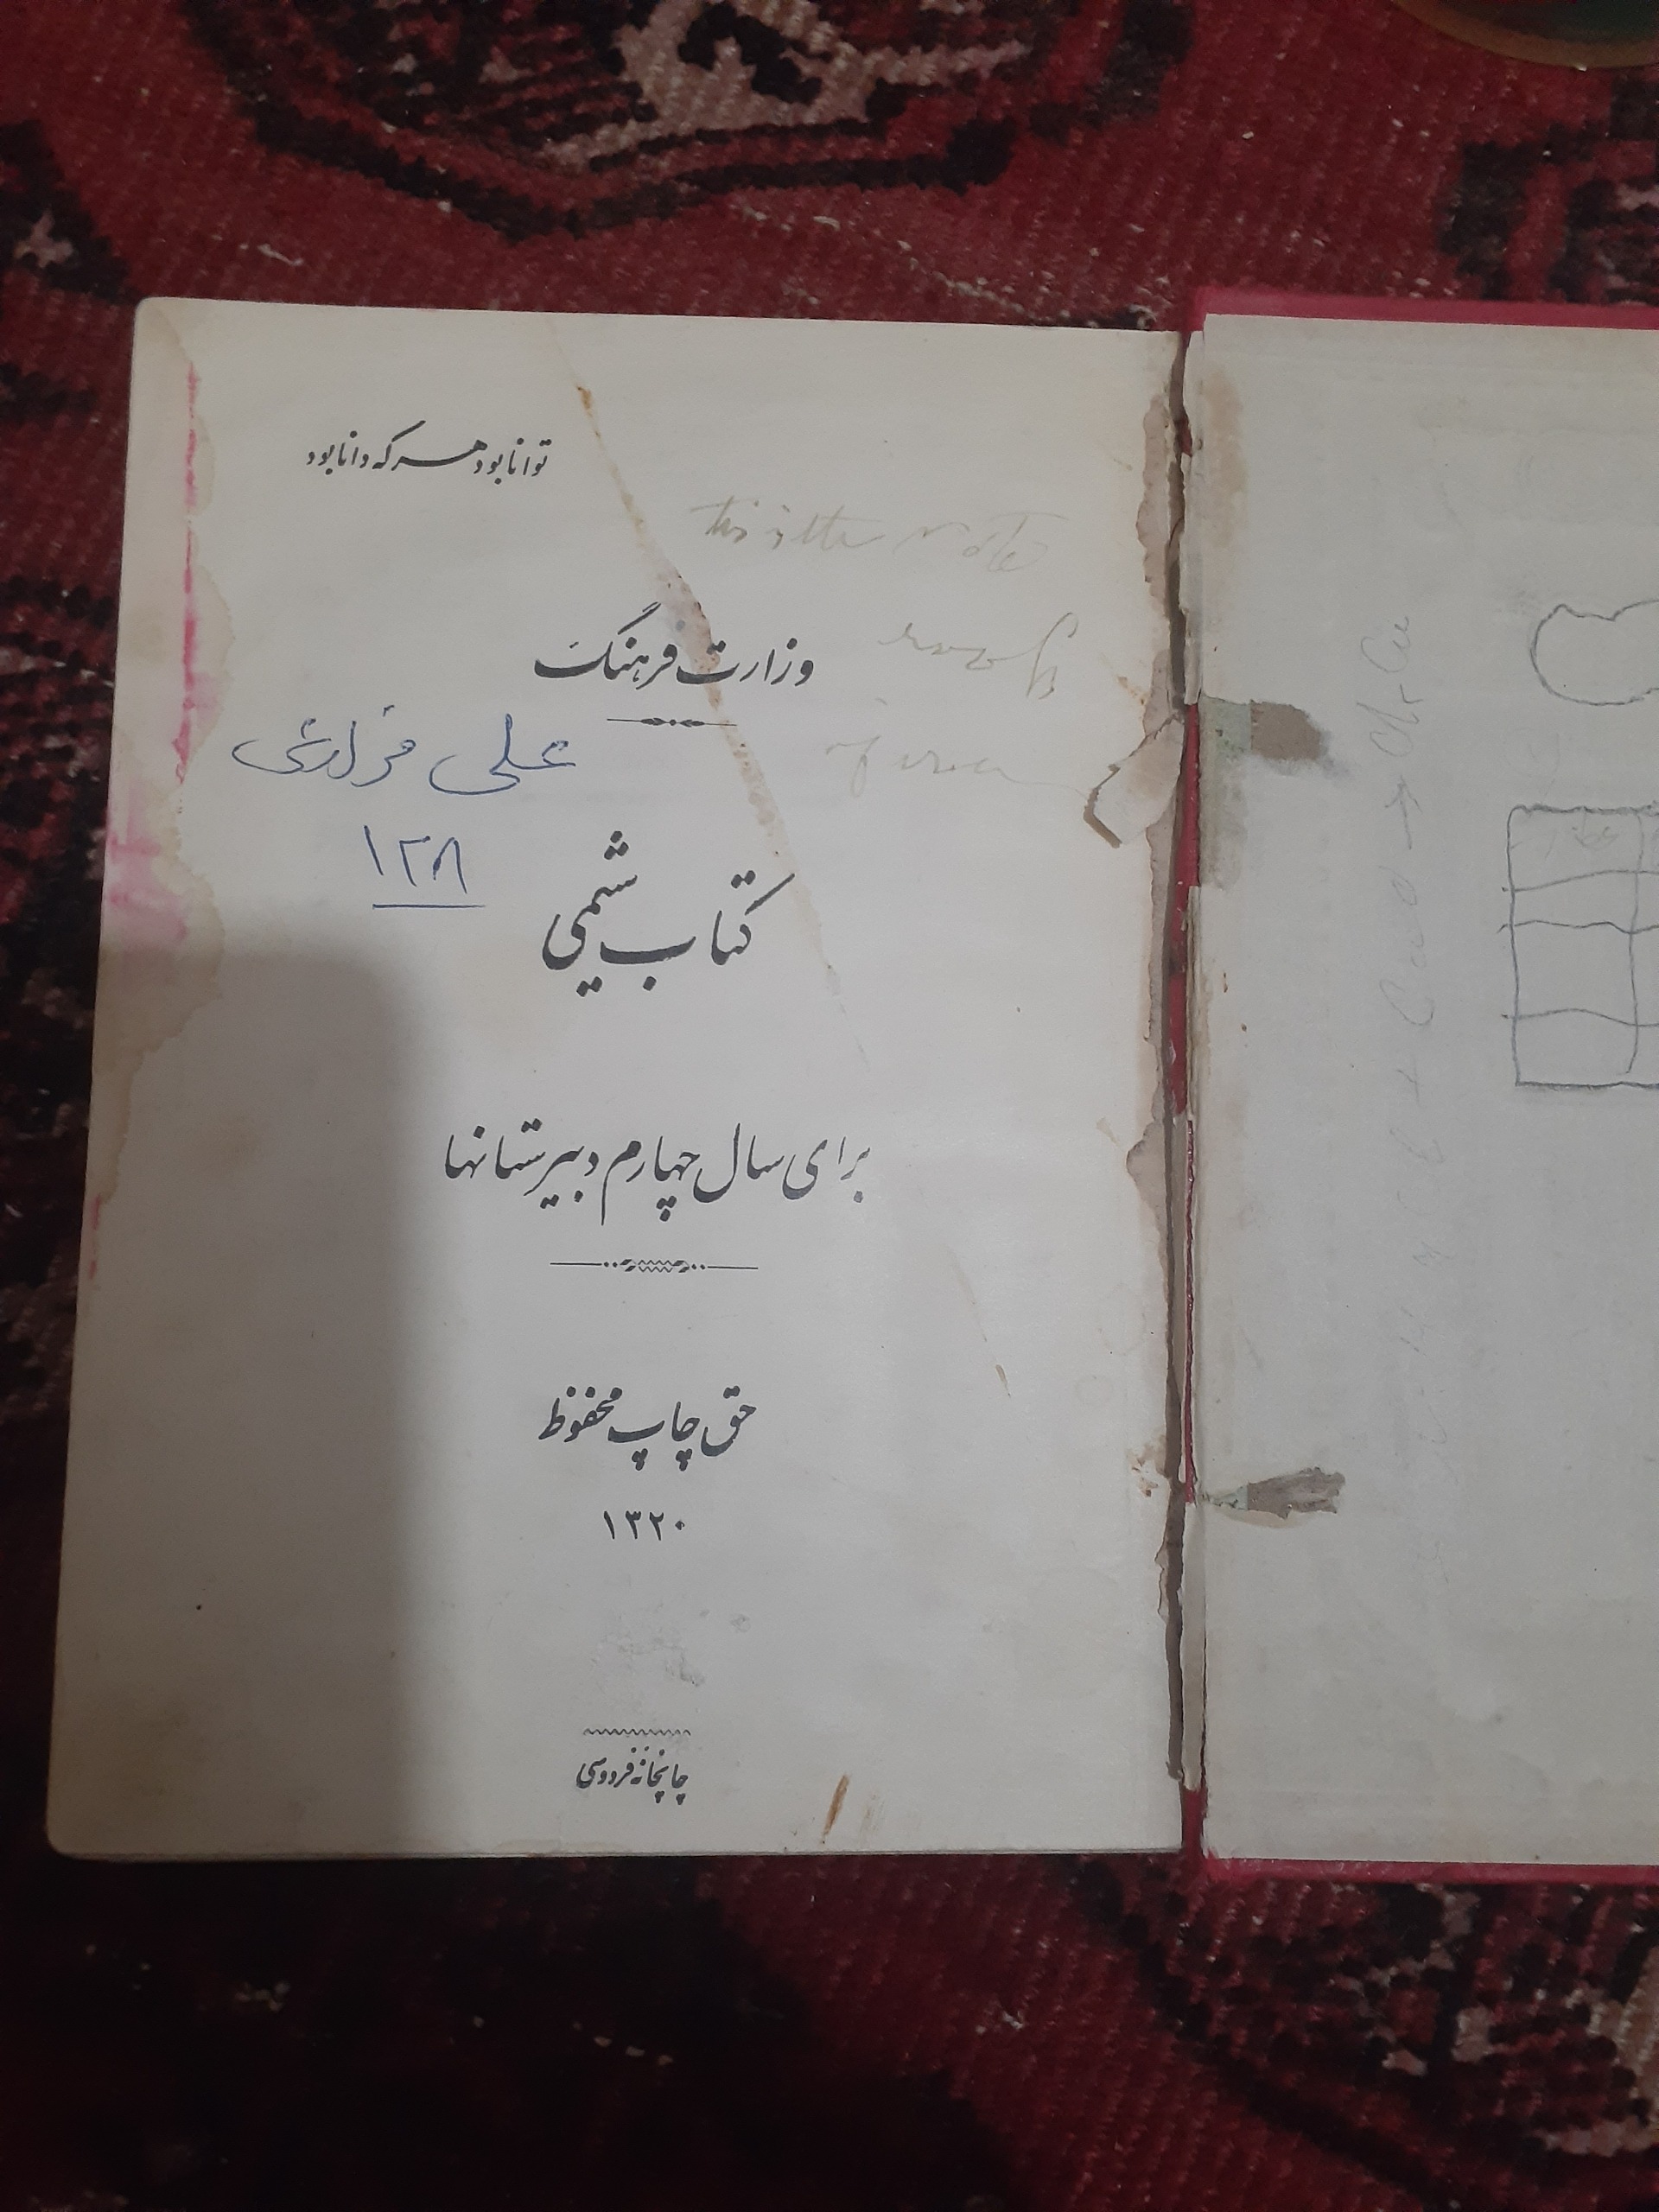 توانا بود هر که دانا بود
this is the note
وزارت فرهنگ
of iran
علی
۱۲۸
کتاب شیمی
برای سال چهارم دبیرستانها
حق چاپ محفوظ
۱۳۲۰
چاپخانه فردوسی